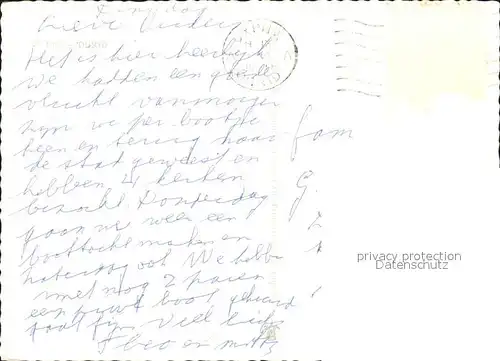 Lieve Ouders
Het is hier heerlijk
We hadden een goede
vlucht vanmorgen
zijn we per bootje
heen en terug naar
de stad geweest en
hebben 4 kerken
bezocht Donderdag
gaan we weer een
boottocht maken en
zaterdag ook We hebben
met nog 2 paren
een privé boot gehuurd
gaat fijn Veel liefs
en
Fam
G.
privacy protection
Datenschutz